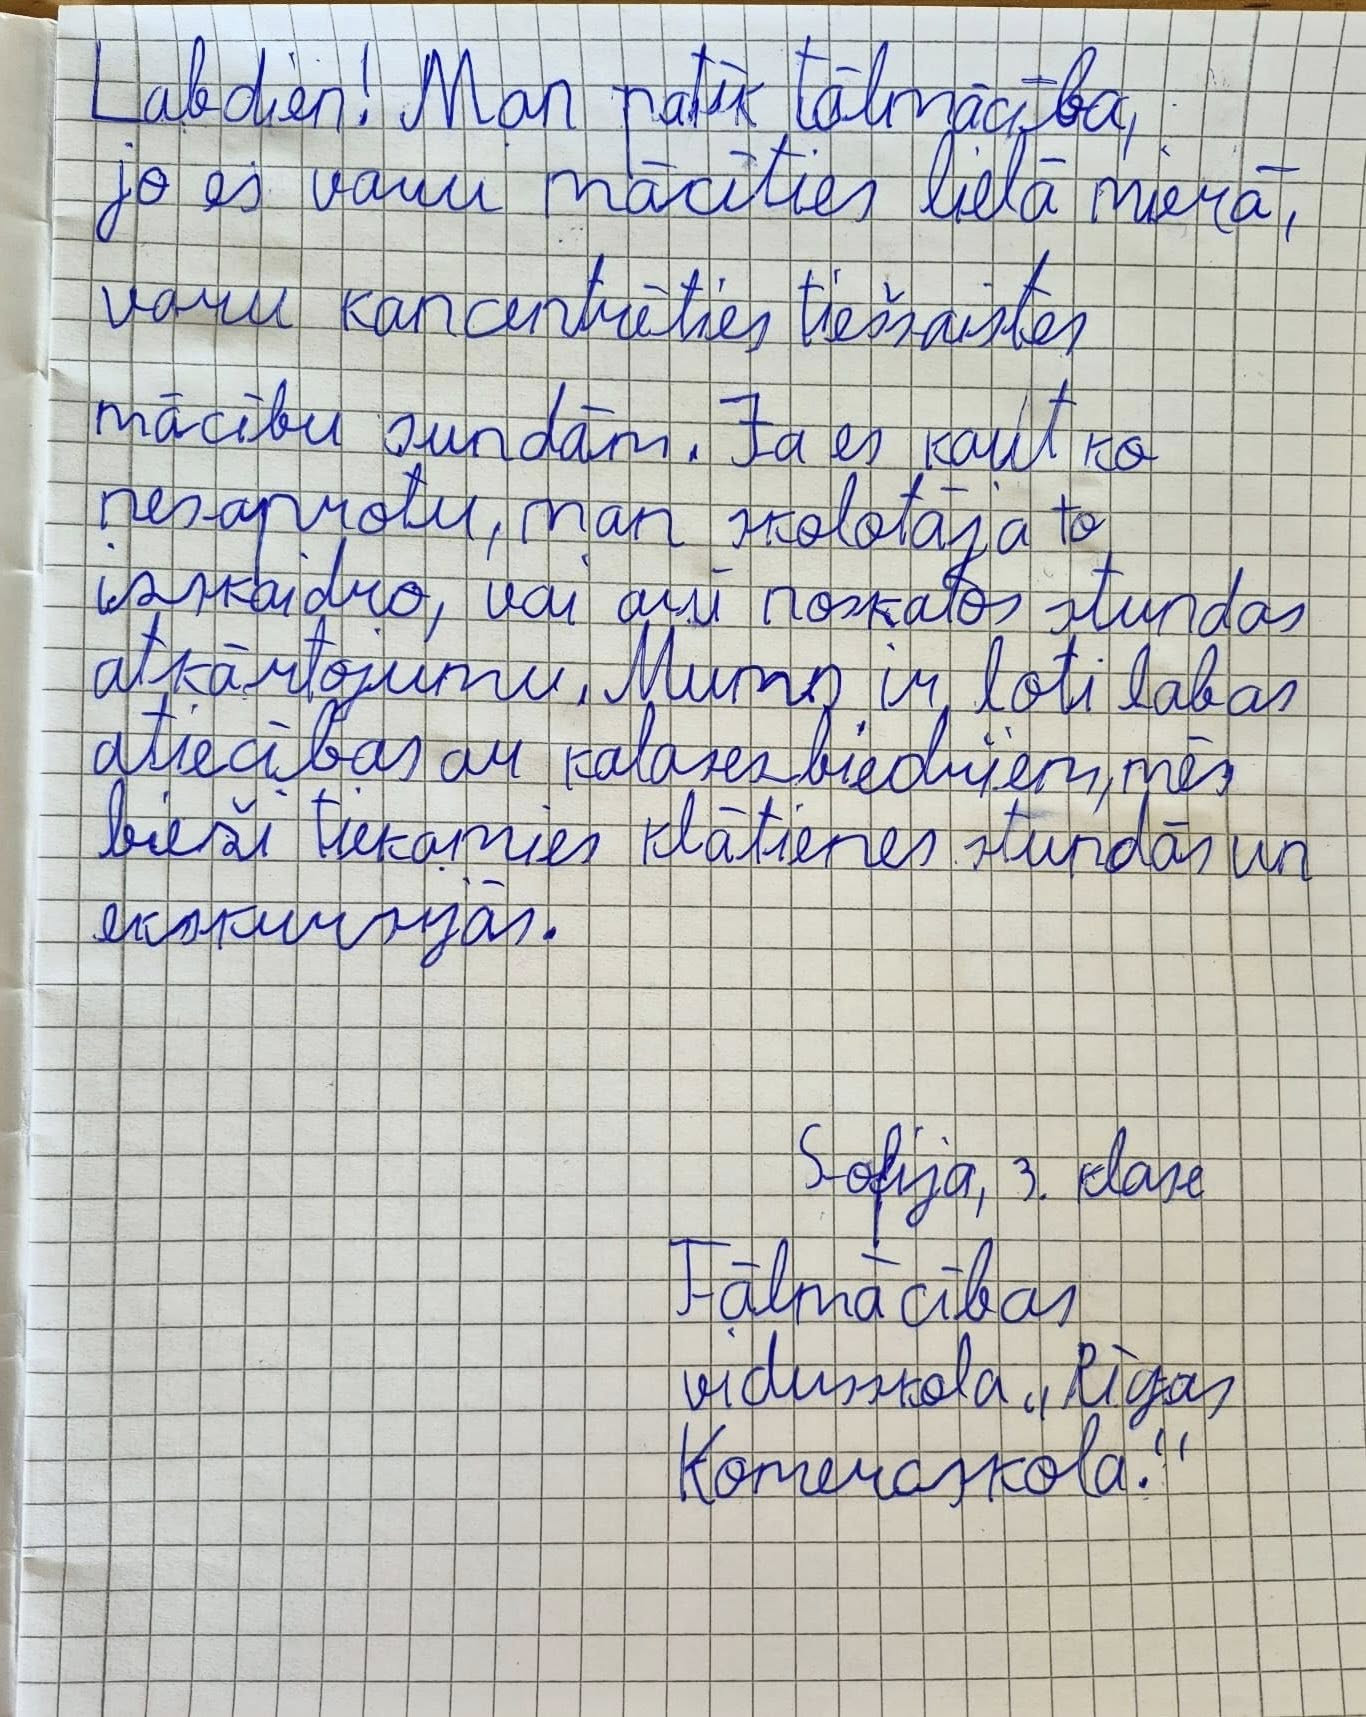 Labdien! Man patīk tālmācība,
jo es varu mācīties lielā mierā,
varu kancentrēties tiešsaistes
mācību sundām. Ja es kaut ko
nesaprotu, man skolotāja to
izskaidro, vai arī noskatos stundas
atkārtojumu. Mums ir ļoti labas
atiecības ar kalasesbiedrijem, mēs
bieži tiekamies klātienes stundās un
ekskursijās.
Sofija, 3. klase
Tālmācības
vidusskola „Rīgas
Komercskola."